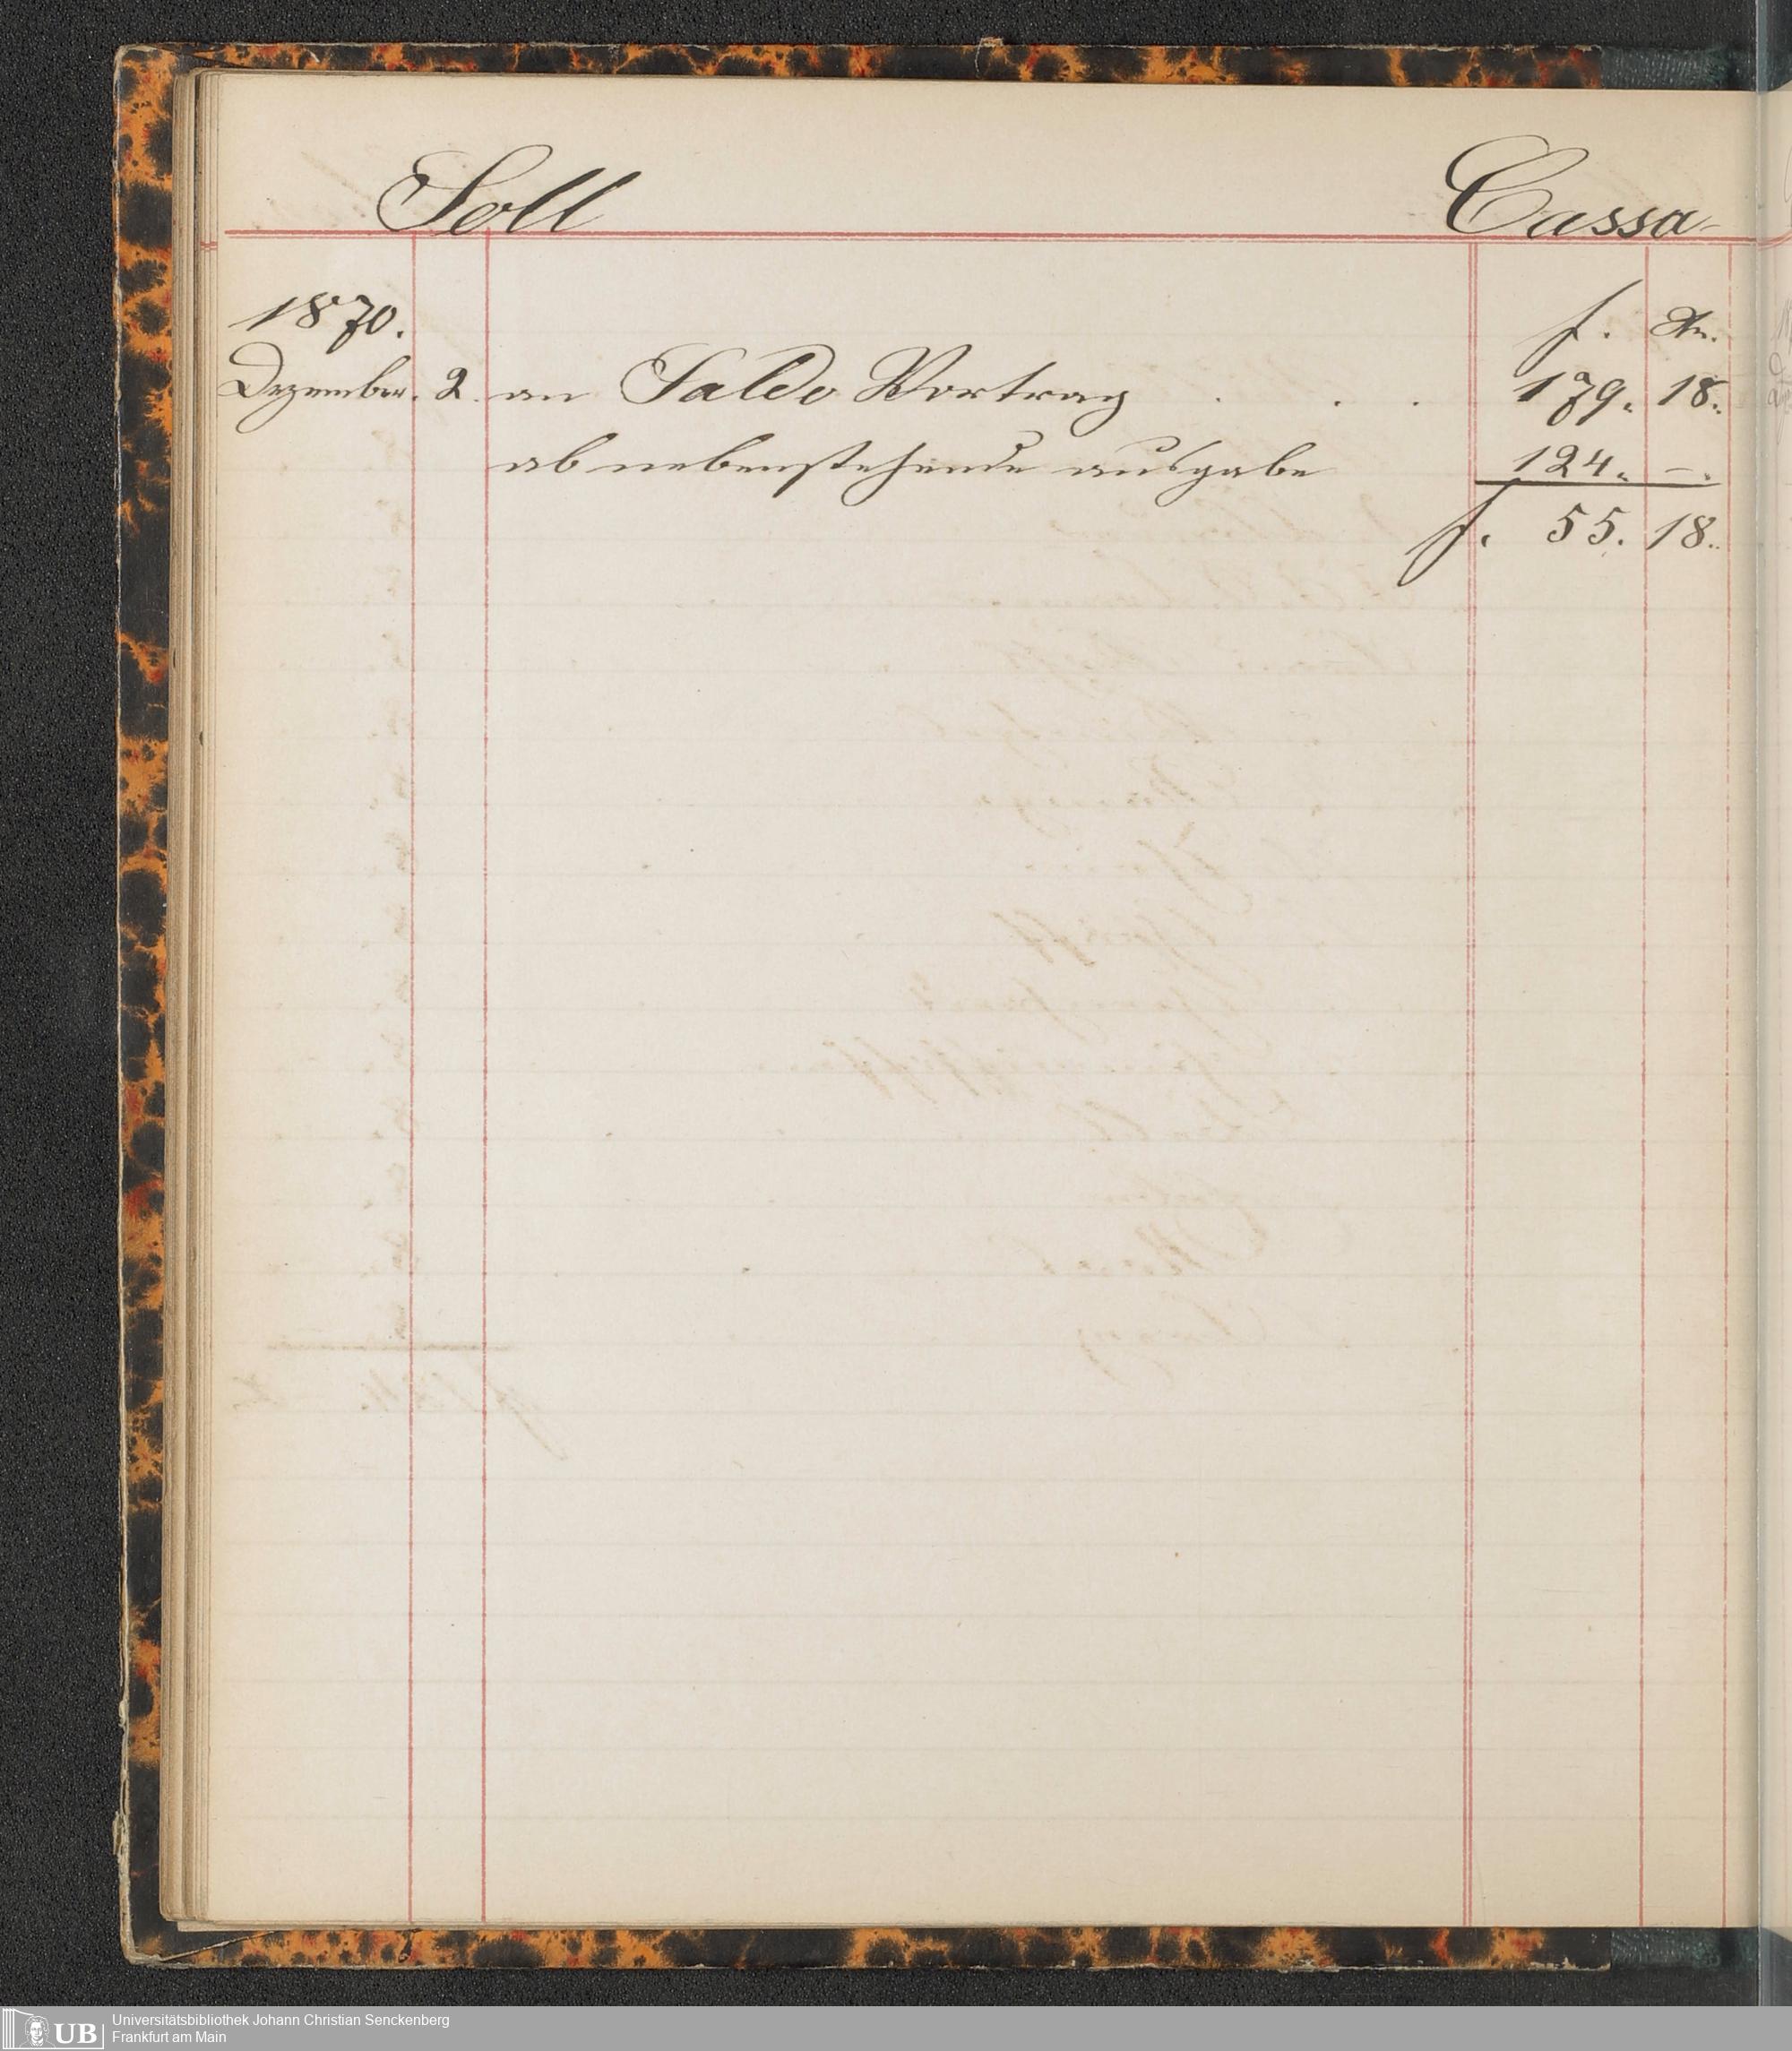 Soll Cassa
1870. f. Xr.
Dezember. 2. an Saldo Vortrag . . . 179. 18.
ab nebenstehende ausgabe 124. —.
f. 55. 18.
UB Universitätsbibliothek Johann Christian Senckenberg
Frankfurt am Main